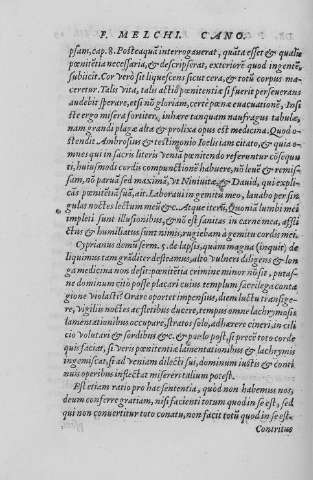 F. MELCHI. CANO.
psam, cap. 8. Posteaquā interrogauerat, quāta esset & qualis
pœnitētia necessaria, & descripserat, exteriorē quod ingentē,
subiicit. Cor verò sit liquescens sicut cera, & totū corpus ma-
ceretur. Talis vita, talis actio pœnitētiæ si fuerit perseuerans
audebit sperare, etsi nō gloriam, certè pœnæ euacuationē, Insi
ste ergo misera fortiter, inhære tanquam naufragus tabulæ,
nam grandi plagæ alta & prolixa opus est medicina. Quod o-
stendit Ambrosius & testimonio Ioelis iam citato, & quia o-
mnes qui in sacris literis veniā pœnitendo referuntur cōsequu
ti, huiusmodi cordis compunctionē habuere, nō leuē & remis-
sam, nō paruā sed maximā, vt Niniuitæ & Dauid, qui expli-
cās pœnitētiā suā, ait. Laboraui in gemitu meo, lauabo per sin-
gulas noctes lectum meū &c. Atque iterū. Quoniā lumbi mei
impleti sunt illusionibus, & nō est sanitas in carne mea, affli
ctus & humiliatus sunt nimis, rugiebam à gemitu cordis mei.
Cyprianus domū ferm. 5. de lapsis, quàm magna (inquit) de
liquimus tam grāditer defleamus, alto vulneri diligens & lon
ga medicina non desit: pœnitētia crimine minor nō sit, putas-
ne dominum citò posse placari cuius templum sacrilega conta
gione violasti? Orare oportet impensius, diem luctu transige-
re, vigiliis noctes ac fletibus ducere, tempus omne lachrymosis
lamentationibus occupare, stratos solo, adhærere cineri, in cili
cio volutari & sordibus & c. & paulo post, si precē toto corde
quis faciat, si veris pœnitētiæ lamentationibus & lachrymis
ingemiscat, si ad veniam delicti sui, dominum iustis & conti
nuis operibus inflectat misereri talium potest.
Est etiam ratio pro hac sententia, quòd non habemus nos,
deum conferre gratiam, nisi facienti totum quod in se est, sed
qui non conuertitur toto conatu, non facit totū quod in se est.
Contritus